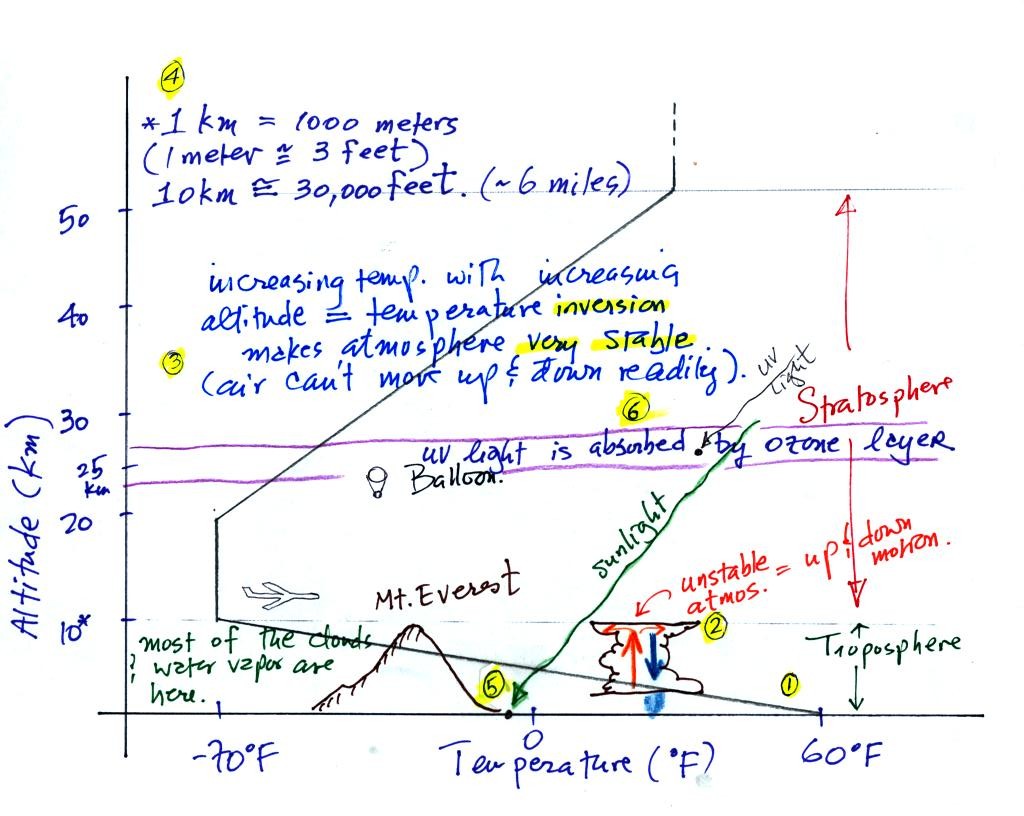 4
*1 km = 1000 meters
(1 meter ≅ 3 feet)
10km ≅ 30,000 feet. (~6 miles)
50
increasing temp. with increasing
altitude = temperature inversion
40
makes atmosphere very stable.
3
(air can't move up & down readily).
uv
light
Stratosphere
6
30
uv light is absorbed by ozone layer
25
km
Balloon.
Altitude (km)
20
sunlight
unstable = up & down
atmos. motion.
Mt. Everest
10*
2
most of the clouds
& water vapor are
here.
Troposphere
5
1
-70°F
0
60°F
Temperature (°F)